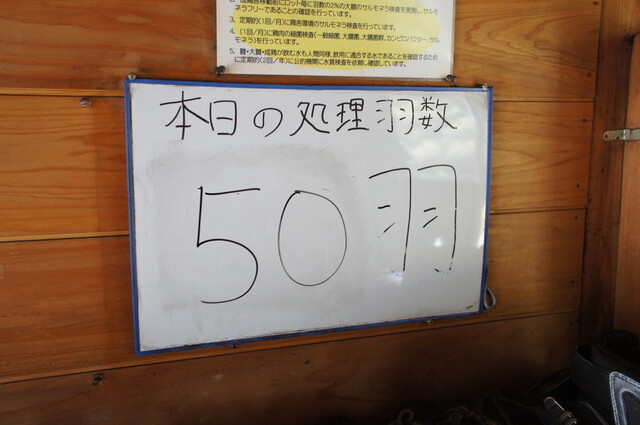 2. 成鶏舎移動前にロット毎に羽数の2%の大雛のサルモネラ検査を実施し、サルモ
ネラフリーであることの確認を行っています。
3. 定期的(1回/月)に鶏舎環境のサルモネラ検査を行っています。
4. (1回/月)に鶏肉の細菌検査(一般細菌、大腸菌、大腸菌群、カンピロバクター、サルモ
ネラ)を行っています。
5. 雛・大雛・成鶏が飲む水も人間同様、飲用に適合する水であることを確認するため
に定期的(2回/年)に公的機関に水質検査を依頼し確認しています。
本日の処理羽数
50羽